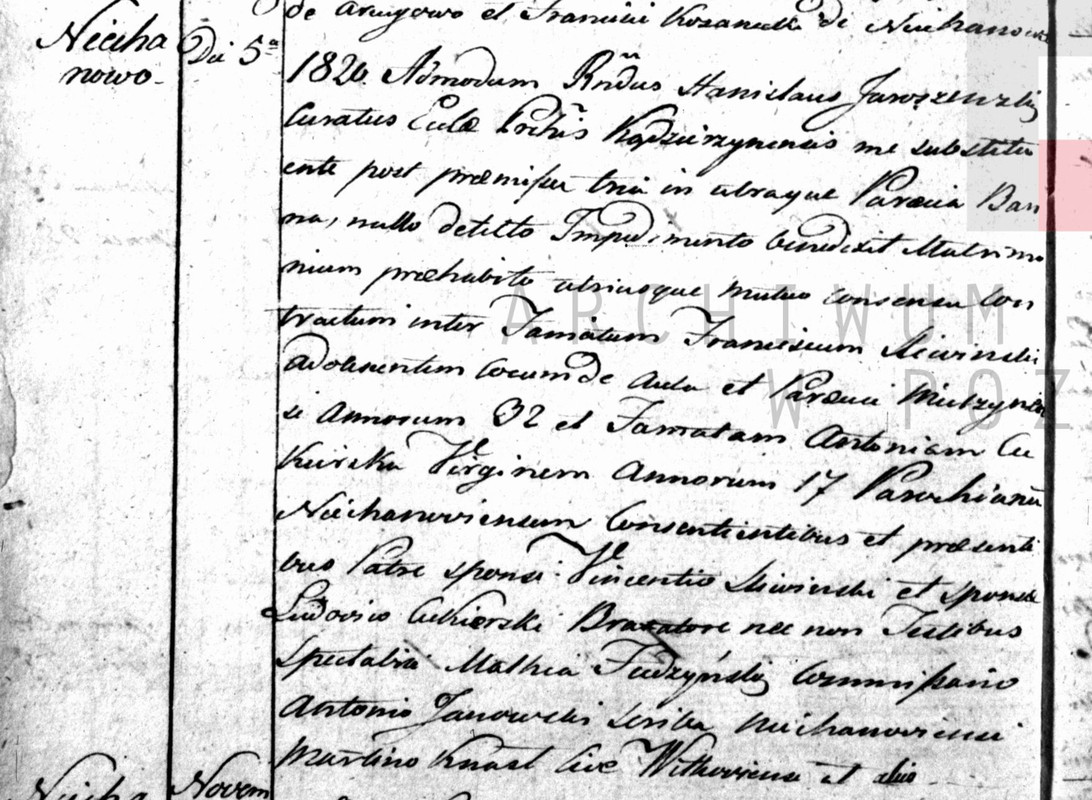 de et Francisci Kozanecki de Niechanowo
Niecha
nowo.
Die 5ª
1826. Admodum Rndus Stanislaus Jaroszewski
Curatus Eccle Prchis Kędzierzynensis me substitu
ente post præmissa tria in utraque Parœcia Ban
na, nullo detecto Impedimento benedixit Matrimo
nium præhabito utriusque mutuo consensu Con
tractum inter Famatum Franciscum Siwinski
adolescentem Cocum de Aula et Parœcia
si Annorum 32 et Famatam Antoniam Cu
kierska Virginem Annorum 17 Parochianam
Niechanoviensem Consentientibus et præsenti
bus Patre sponsi Vincentio Siwinski et sponsæ
Ludovico Cukierski Braxatore nec non Testibus
Spectabili Mathia Commissario
Antonio Janowski Scriba Niechanoviensi
Martino Knast Cive Witkoviensi et alio
Niecha
Novem
ARCHIWUM
W POZ